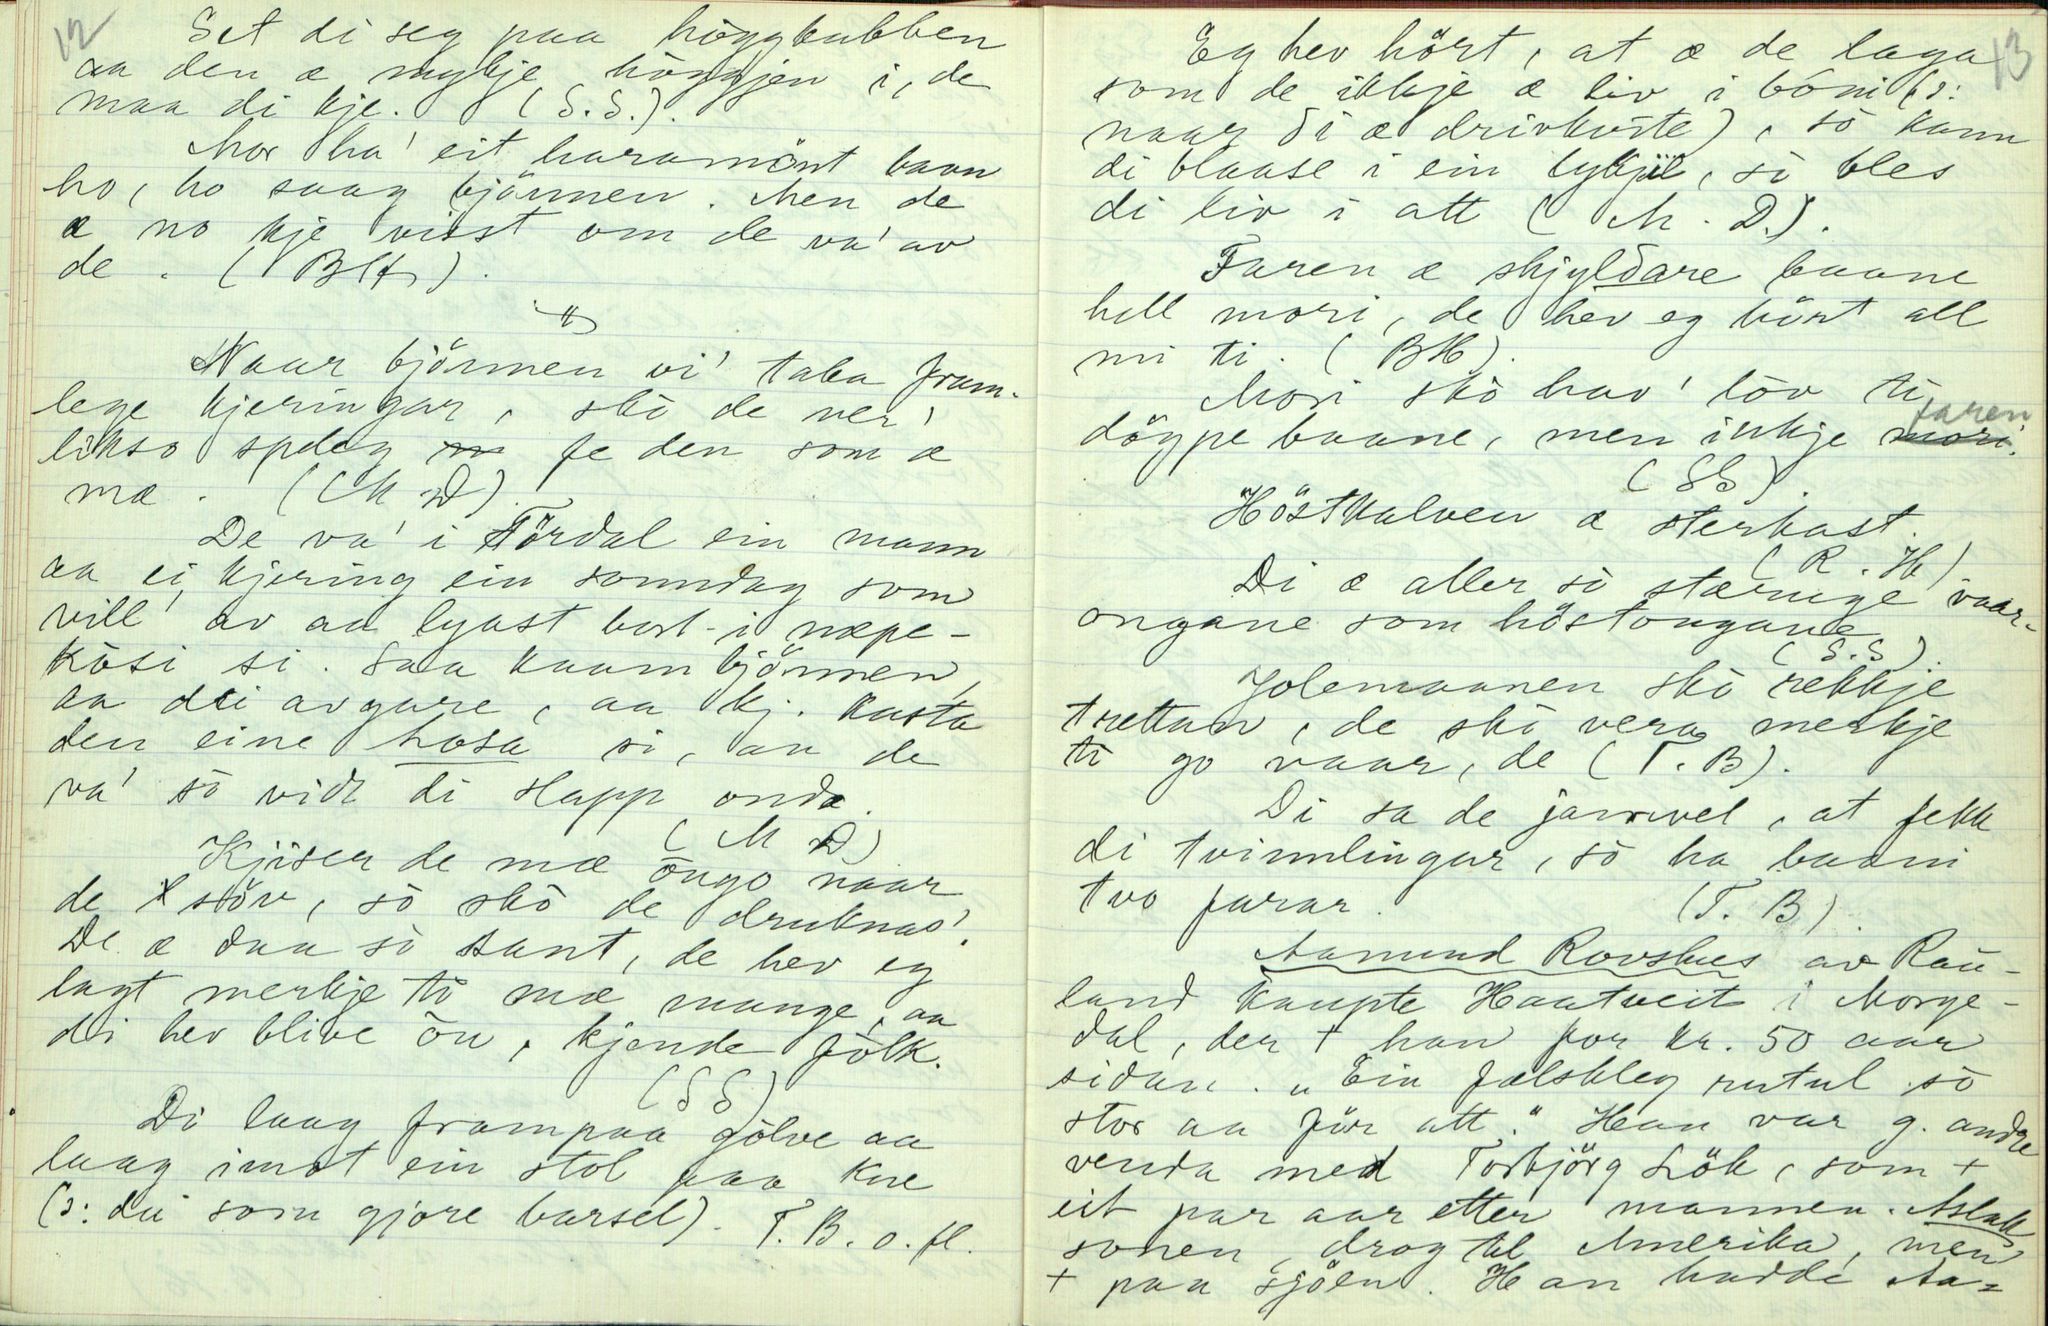 12
Set di seg paa höggkubben
aa den æ mykje höggjen i, de
maa di kje. (S.S.).
Mor ha' eit haramönt baan
ho, ho saag björnen. Men de
æ no kje visst om de va' av
de. (BH).
Naar björnen vi' taka frem-
lege kjeringar, skò de ver'
likso spdeg fe den som æ
mæ. (M D).
De va' i Tördal ein mann
aa ei kjering ein sonndag som
vill' av aa lyast bort i næpe-
kòsi si. Saa kaam björnen,
aa dei avgare, aa kj. kasta
den eine hosa si, aa de
va' sò vidt di slapp onda.
(M D)
Kjiser de mæ òngo naar
de söv, sò skò de druknas'.
De æ daa sò sant, de hev eg
lagt merkje ti mæ mange, aa
di hev blive òu, kjende fólk.
(SS)
Di laag frampaa gölve aa
laag imot ein stol paa kne
(ɔ: dei som gjore barsel). T. B. o. fl.
13
Eg hev hört, at æ de laga
som de ikkje æ liv i bóni (ɔ:
naar di æ drivkvste), sò kann
di blaase i ein lykjil, sò bles
di liv i att (M. D.).
Faren æ skjyldare baane
hell mori, de hev eg hört all
mi ti. (BH).
Mori skò hav' lov ti
döype baane, men inkje faren
(SS).
Höstkalven æ sterkast.
(R. H)
Di æ aller sò stæruge vaar-
ongane som höstongane
(S.S).
Jolemaanen skò rekkje
trettan, de skò vera merkje
ti go vaar, de (T. B).
Di sa de jamvel, at fekk
di tvinnlingar, sò ha baani
tvo farar. (T. B)
Aamund Rovshus av Rau-
land kaupte Haatveit i Morge-
dal, der + han for kr. 50 aar
sidan. „Ein fælskleg rutul sò
stor aa för att." Han var g. andre
venda med Torbjörg Lök, som +
eit par aar etter mannen. Aslak
sonen, drog til Amerika, men
+ paa sjöen. Han hadde Aa-